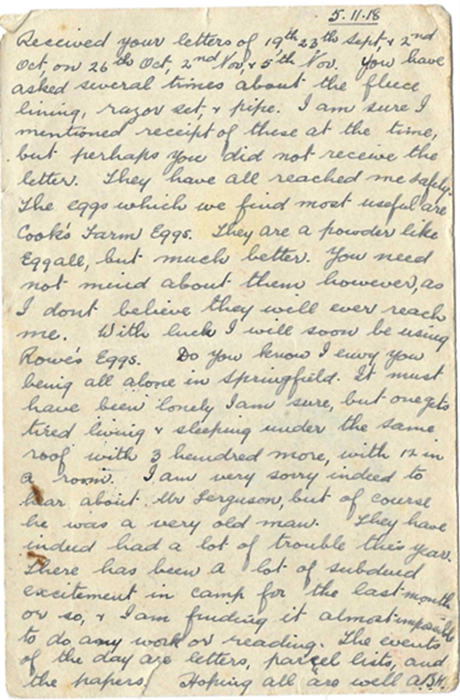 5.11.18
Received your letters of 19th 23th Sept, & 2nd
Oct, on 26th Oct, 2nd Nov, & 5th Nov. You have
asked several times about the fleece
lining, razor set, & pipe. I am sure I
mentioned receipt of these at the time,
but perhaps you did not receive the
letter. They have all reached me safely.
The eggs which we find most useful are
Cook's Farm Eggs. They are a powder like
Eggall, but much better. You need
not mind about them however, as
I dont believe they will ever reach
me. With luck I will soon be using
Rowe's Eggs. Do you know I envy you
being all alone in Springfield. It must
have been lonely I am sure, but one gets
tired living & sleeping under the same
roof with 3 hundred more, with 12 in
a room. I am very sorry indeed to
hear about Mr Ferguson, but of course
he was a very old man. They have
indeed had a lot of trouble this year.
There has been a lot of subdued
excitement in camp for the last month
or so, & I am finding it almost impossible
to do any work or reading. The events
of the day are letters, parcel lists, and
the papers. Hoping all are well